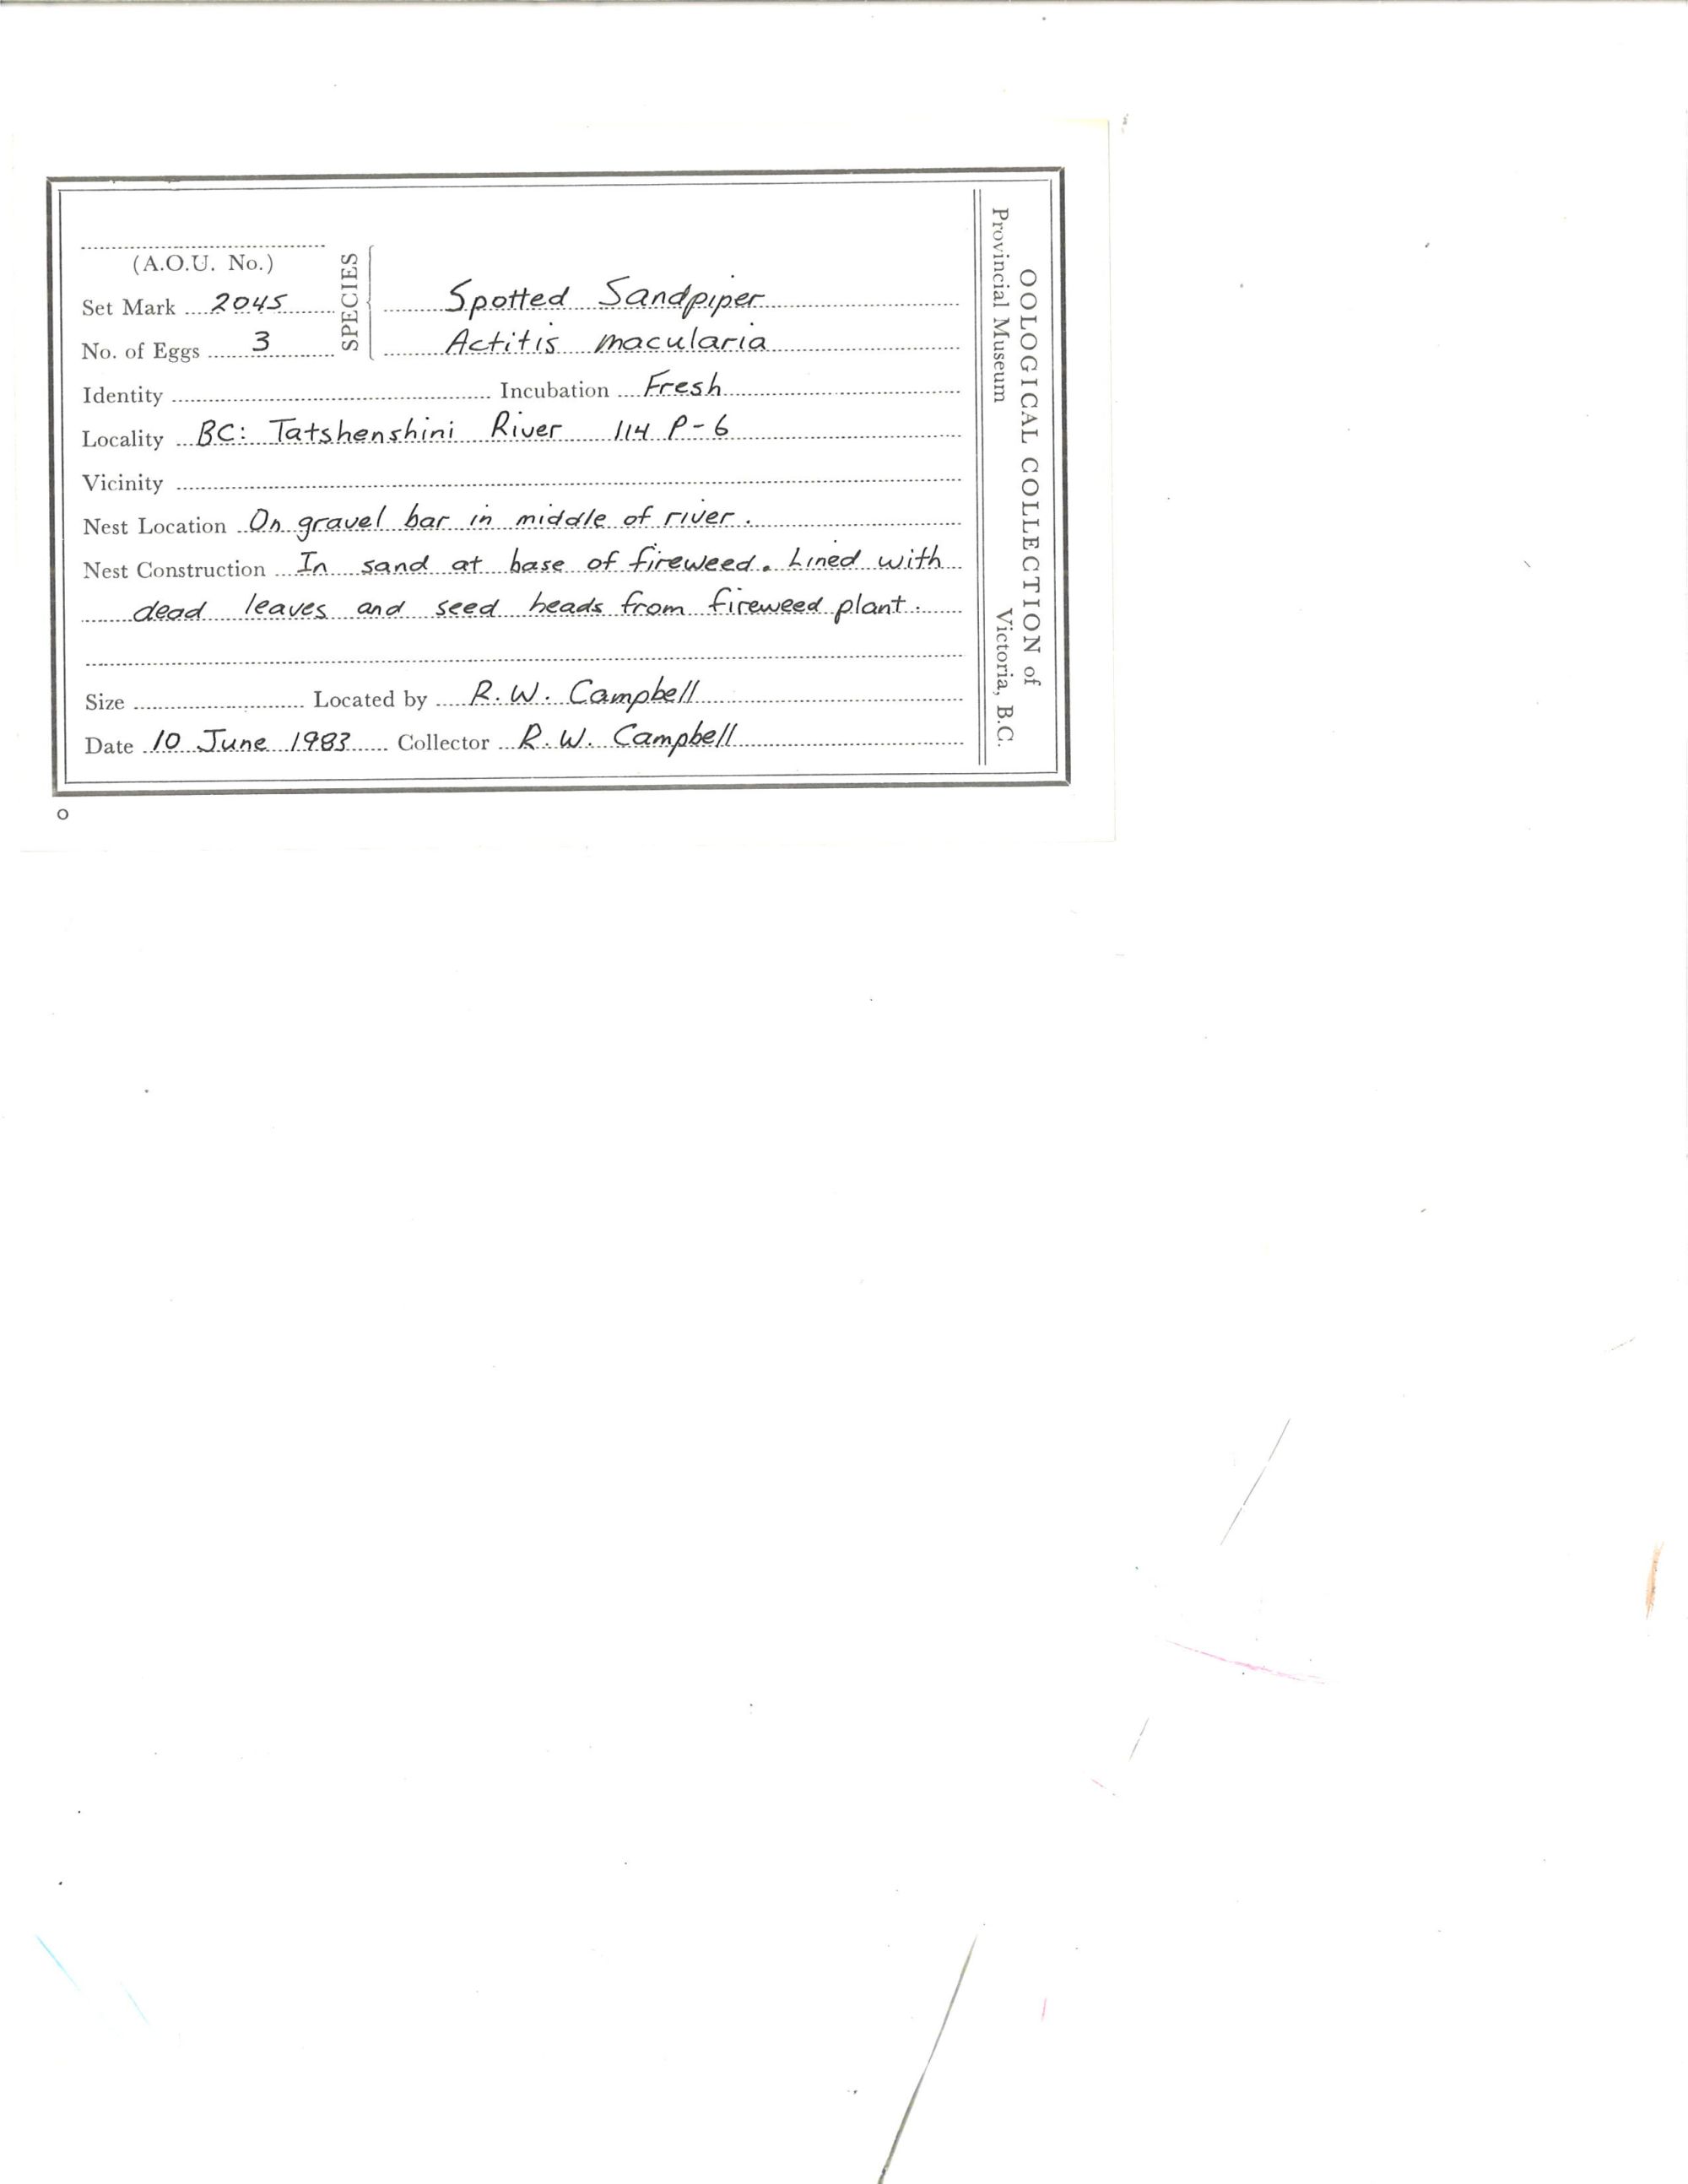 (A.O.U. No.)
SPECIES
Set Mark 2045
Spotted Sandpiper
No. of Eggs 3
Actitis macularia
Identity Incubation Fresh
Locality BC: Tatshenshini River 114 P-6
Vicinity
Nest Location On gravel bar in middle of river.
Nest Construction In sand at base of fireweed. Lined with
dead leaves and seed heads from fireweed plant.
Size Located by R.W. Campbell
Date 10 June 1983 Collector R.W. Campbell
OOLOGICAL COLLECTION of
Provincial Museum Victoria, B.C.